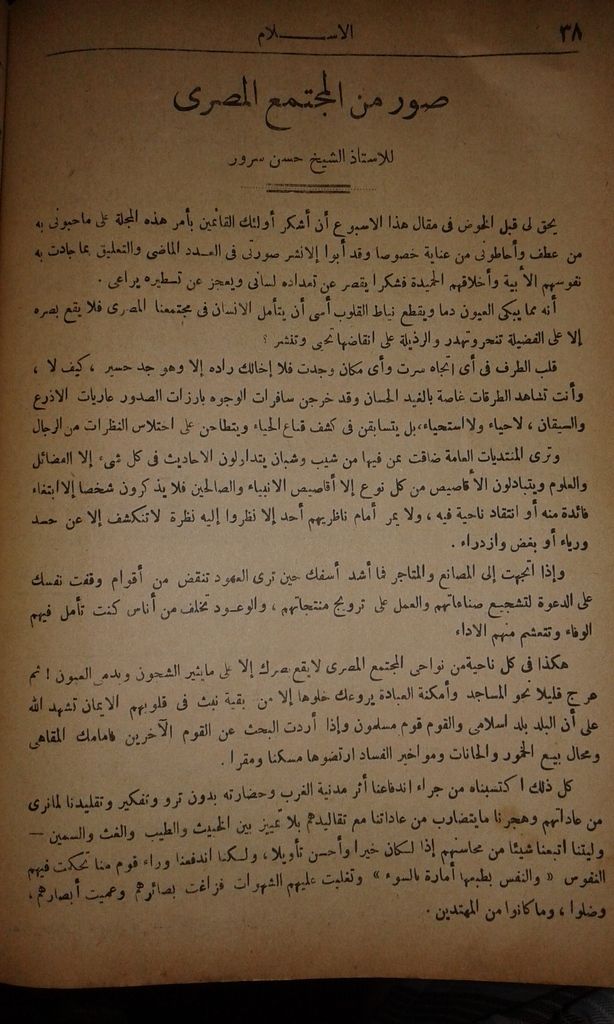 ٣٨
الاســـلام
صور من المجتمع المصرى
للاستاذ الشيخ حسن سرور
يحق لى قبل الخوض فى مقال هذا الاسبوع أن أشكر أولئك القائمين بأمر هذه المجلة على ماحبونى به
من عطف وأحاطونى من عناية خصوصا وقد أبوا إلانشر صورتى فى العـدد الماضى والتعليق بما جادت به
نفوسهم الأبية وأخلاقهم الحميدة فشكرا يقصر عن تعداده لسانى ويعجز عن تسطيره يراعى .
أنه مما يبكى العيون دما ويقطع نياط القلوب أسى أن يتأمل الانسان فى مجتمعنا المصرى فلا يقع بصره
إلا على الفضيلة تنحر وتهدر والرذيلة على انقاضها تحيى وتنشر ؟
قلب الطرف فى أى اتجاه سرت وأى مكان وجدت فلا إخالك راده إلا وهو جد حسير ، كيف لا ،
وأنت تشاهد الطرقات غاصة بالغيد الحسان وقد خرجن سافرات الوجوه بارزات الصدور عاريات الاذرع
والسيقان ، لاحياء ولا استحياء، بل يتسابقن فى كشف قناع الحياء ويتطاحن على اختلاس النظرات من الرجال
وترى المنتديات العامة ضاقت بمن فيها من شيب وشبان يتداولون الاحاديث فى كل شىء إلا الفضائل
والعلوم ويتبادلون الأقاصيص من كل نوع إلا أقاصيص الانبياء والصالحين فلا يذكرون شخصا إلا ابتغاء
فائدة منه أو انتقاد ناحية فيه ، ولا يمر أمام ناظريهم أحد إلا نظروا إليه نظرة لا تنكشف إلا عن حسد
ورياء أو بغض وازدراء .
وإذا اتجهت إلى المصانع والمتاجر فما أشد أسفك حين ترى العهود تنقض من أقوام وقفت نفسك
على الدعوة لتشجيع صناعاتهم والعمل على ترويج منتجاتهم ، والوعـود تخلف من أناس كنت تأمل فيهم
الوفاء وتتعشم منهم الاداء
هكذا فى كل ناحية من نواحى المجتمع المصرى لا يقع بصرك إلا على مايثير الشجون ويدمى العيون ! ثم
عرج قليلا نحو المساجد وأمكنة العبادة يروعك خلوها إلا من بقية نبت فى قلوبهم الايمان تشهد الله
على أن البلد بلد اسلامى والقوم قوم مسلمون وإذا أردت البحث عن القوم الآخرين فامامك المقاهى
ومحال بيع الخمور والحانات ومواخير الفساد ارتضوها مسكنا ومقرا .
كل ذلك اكتسبناه من جراء اندفاعنا أثر مدنية الغرب وحضارته بدون ترو وتفكير وتقليدنا لما نرى
من عاداتهم وهجرنا مايتضارب من عاداتنا مع تقاليدهم بلا تمييز بين الخبيث والطيب والغث والسمين —
وليتنا اتبعنا شيئا من محاسنهم إذا لكان خيرا وأحسن تأويلا ، ولكنا اندفعنا وراء قوم منا تحكمت فيهم
النفوس « والنفس بطبعها أمارة بالسوء » وتغلبت عليهم الشهوات فزاغت بصائرهم وعميت أبصارهم ،
وضلوا ، وما كانوا من المهتدين .